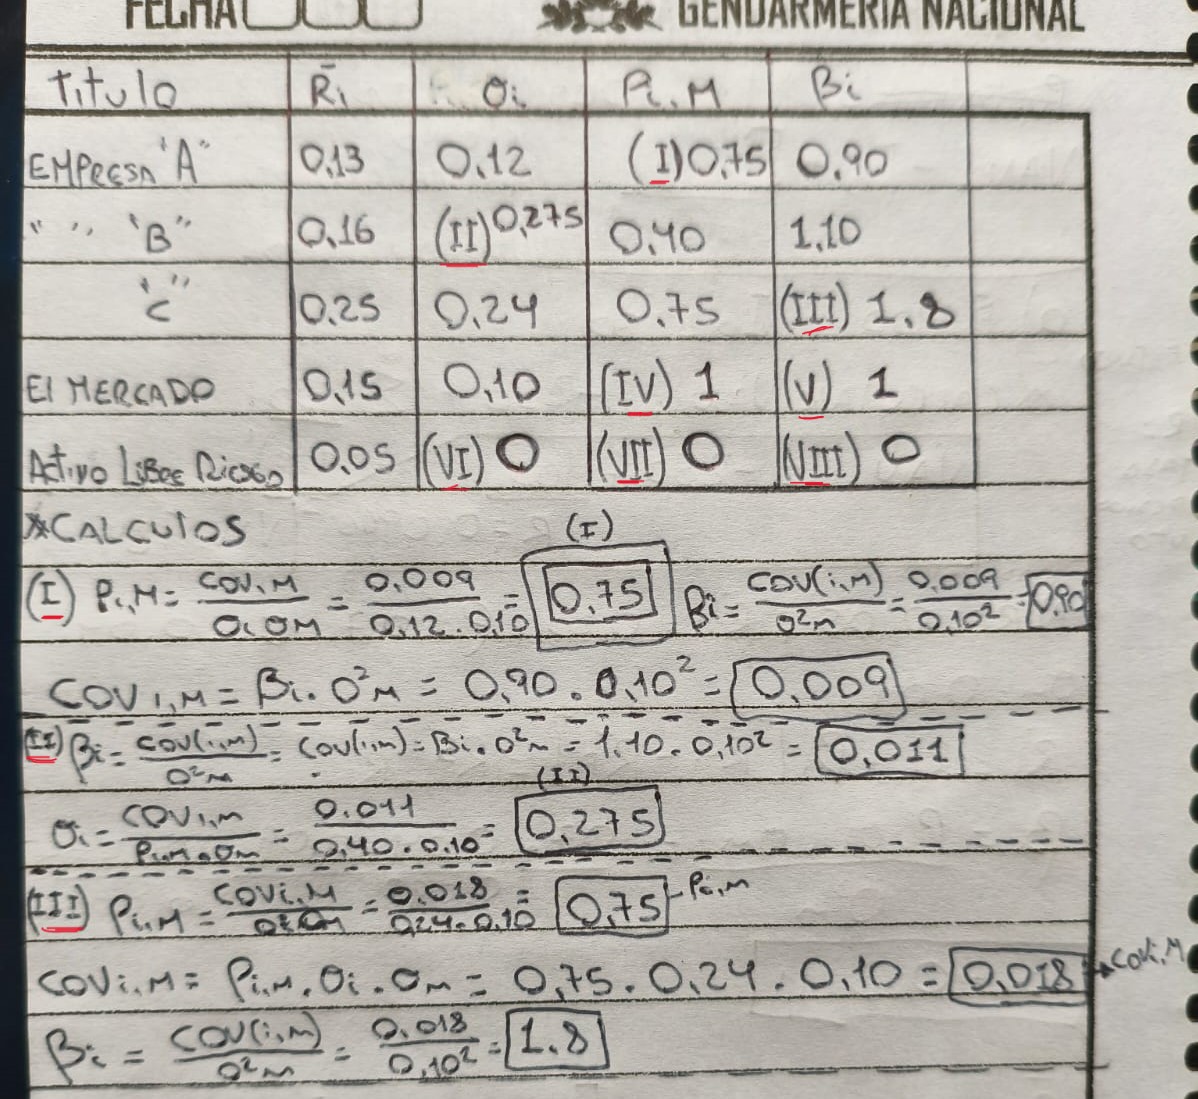 FECHA GENDARMERIA NACIONAL
Titulo R̄i σi ρi,M βi
EMPRESA "A" 0,13 0,12 (I) 0,75 0,90
" " "B" 0,16 (II) 0,275 0,40 1,10
"C" 0,25 0,24 0,75 (III) 1.8
El MERCADO 0,15 0,10 (IV) 1 (V) 1
Activo Libre Riesgo 0.05 (VI) 0 (VII) 0 (VIII) 0
*CALCULOS (I)
(I) ρi,M = COVi,M / σi σM = 0.009 / 0,12 . 0,10 = 0,75 βi = COV(i,M) / σ²m = 0,009 / 0,10² = 0,90
COVi,M = βi . σ²M = 0,90 . 0,10² = 0,009
(II) βi = COV(i,m) / σ²m = COV(i,m) = βi . σ²m = 1,10 . 0,10² = 0,011
(II)
σi = COVi,m / ρi,m . σm = 0.011 / 0,40 . 0,10 = 0,275
(III) ρi,M = COVi,M / σi σm = 0.018 / 0,24 . 0,10 = 0,75 - ρi,m
COVi,M = ρi,M . σi . σm = 0,75 . 0,24 . 0,10 = 0,018 → COVi,M
βi = COV(i,m) / σ²m = 0,018 / 0,10² = 1.8